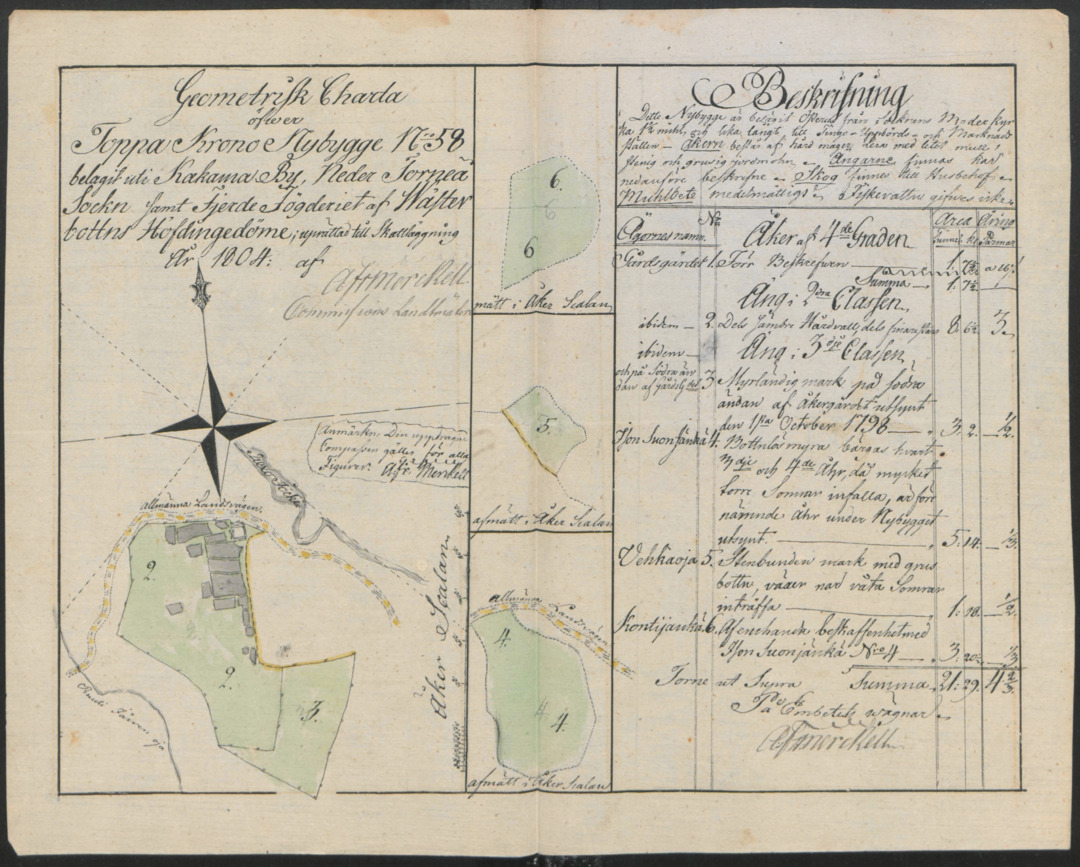 Geometrisk Charta
öfwer
Toppa Krono Nybygge No 58
belägit uti Kakama By, Neder Torneå
Sockn samt Fjerde Fögderiet af Wäster
bottns Höfdingedöme; uprättad till Skattläggning
År 1804: af
Commissions Landtmätare
Anmärkes Den uppdragne
Compassen gäller för alla
Figurer.
Allmänna Landsvägen
2.
2.
3.
Åker Scalan
6.
6
6
mätt i Åker Scalan
5.
afmätt i Åker Scalan
Allmänna Landsvägen
4.
4
4
afmätt i Åker Scalan
Beskrifning
Dette Nybygge är belägit Österut från Sockens Moder Kyr
ka 1½ mihl, och lika långt, till Tings- Uppbörds- och Marknads
ställen - Åkern består af hård mager
stenig och grusig jordmohn - Ängarne finnas här
nedanföre beskrefne - Skog finnes till Husbehof -
Muhlbete medelmåttigt - Fiskevatten gifves icke
Ägornes namn. No Åker af 4de Graden Area
Gårdsgärdet 1. Förr Beskrefven 1. 7½ a 16
Summa 1. 7½
Äng i 2dra Classen
ibidem 2. Dels Jämdre Hårdvall, dels 8. 6½ 3.
Äng i 3dje Classen
ibidem
och på Södra än
dan af 3. Myrländig mark på södra
ändan af åkergärdet utsynt
den 1sta October 1798 3. 2. ½
Ison Suonjänkä 4. Bottnlös myra bärgas hvart
3dje och 4de Åhr, då mycket
torre Somrar infalla, är före
nämnde åhr under Nybygget
utsynt. 5. 14. ⅓
Vehkaoja 5. Stenbunden mark med grus
bottn, växer när våta Somrar
inträffa 1: 18. ½
Kontijänkä 6. Af enehanda beskaffenhet med
Ison Suonjänkä No 4 3. 20. ⅓
Torne ut Supra Summa 21: 29. 4⅔
På Embetets wägnar